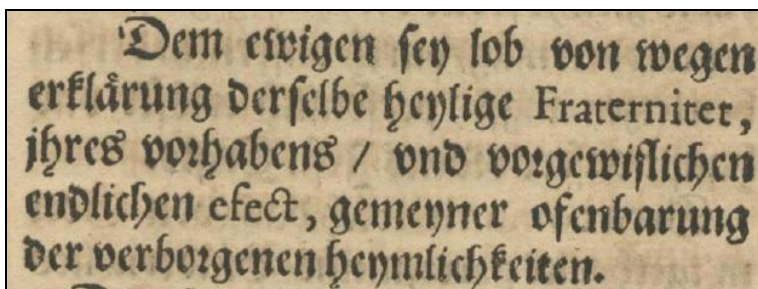 Dem ewigen sey lob von wegen
erklårung derselbe heylige Fraternitet,
jhres vorhabens / vnd vorgewißlichen
endlichen efect, gemeyner ofenbarung
der verborgenen heymlichkeiten.